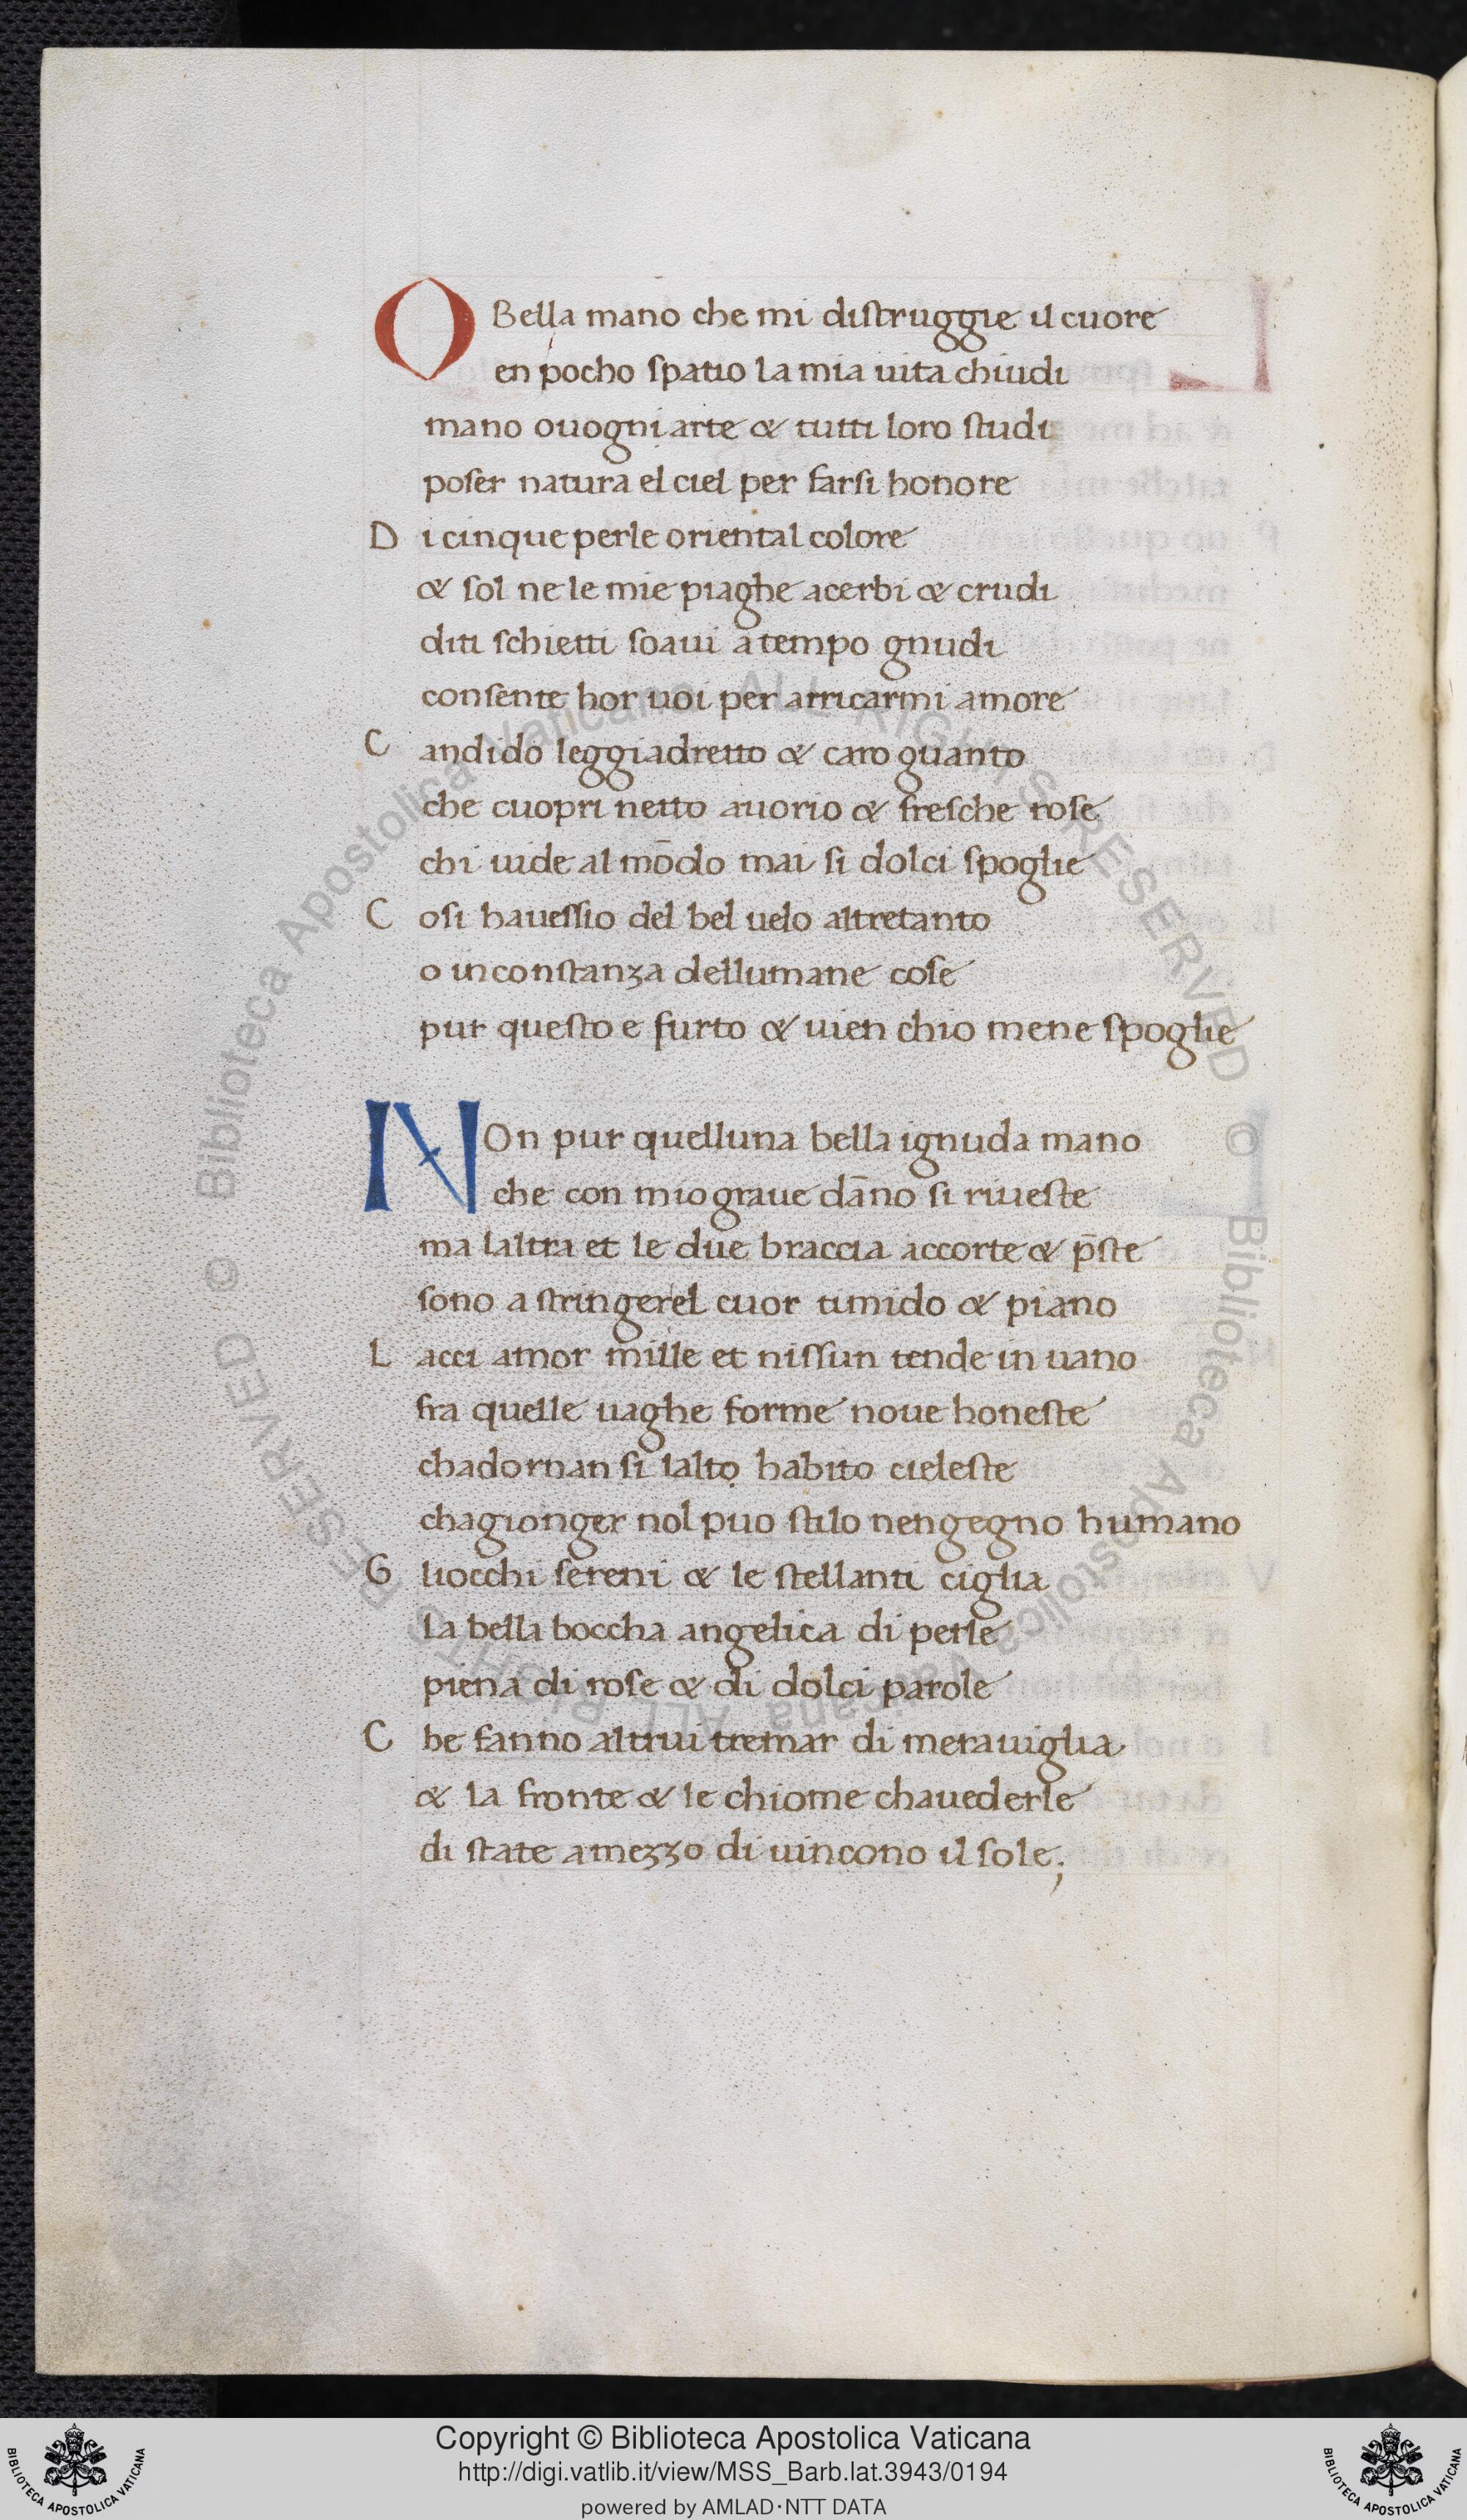 O Bella mano che mi distruggie il cuore
en pocho spatio la mia uita chiudi
mano ouogni arte & tutti loro studi
poser natura el ciel per farsi honore
D i cinque perle oriental colore
& sol ne le mie piaghe acerbi & crudi
diti schietti soaui a tempo gnudi
consente hor uoi per arricarmi amore
C andido leggiadretto & caro guanto
che cuopri netto auorio & fresche rose
chi uide al mōdo mai si dolci spoglie
C osi hauessio del bel uelo altretanto
o inconstanza dellumane cose
pur questo e furto & uien chio mene spoglie
NOn pur quelluna bella ignuda mano
che con mio graue dāno si riueste
ma laltra et le due braccia accorte & p̄ste
sono a stringerel cuor timido & piano
L acci amor mille et nissun tende in uano
fra quelle uaghe forme noue honeste
chadornan si lalto habito cieleste
chagionger nol puo stilo nengegno humano
G liocchi sereni & le stellanti ciglia
la bella boccha angelica di perle
piena di rose & di dolci parole
C he fanno altrui tremar di merauiglia
& la fronte & le chiome chauederle
di state amezzo di uincono il sole;
© Biblioteca Apostolica Vaticana ALL RIGHTS RESERVED © Biblioteca Apostolica Vaticana ALL RIGHTS RESERVED
Copyright © Biblioteca Apostolica Vaticana
http://digi.vatlib.it/view/MSS_Barb.lat.3943/0194
powered by AMLAD·NTT DATA
BIBLIOTECA APOSTOLICA VATICANA
BIBLIOTECA APOSTOLICA VATICANA